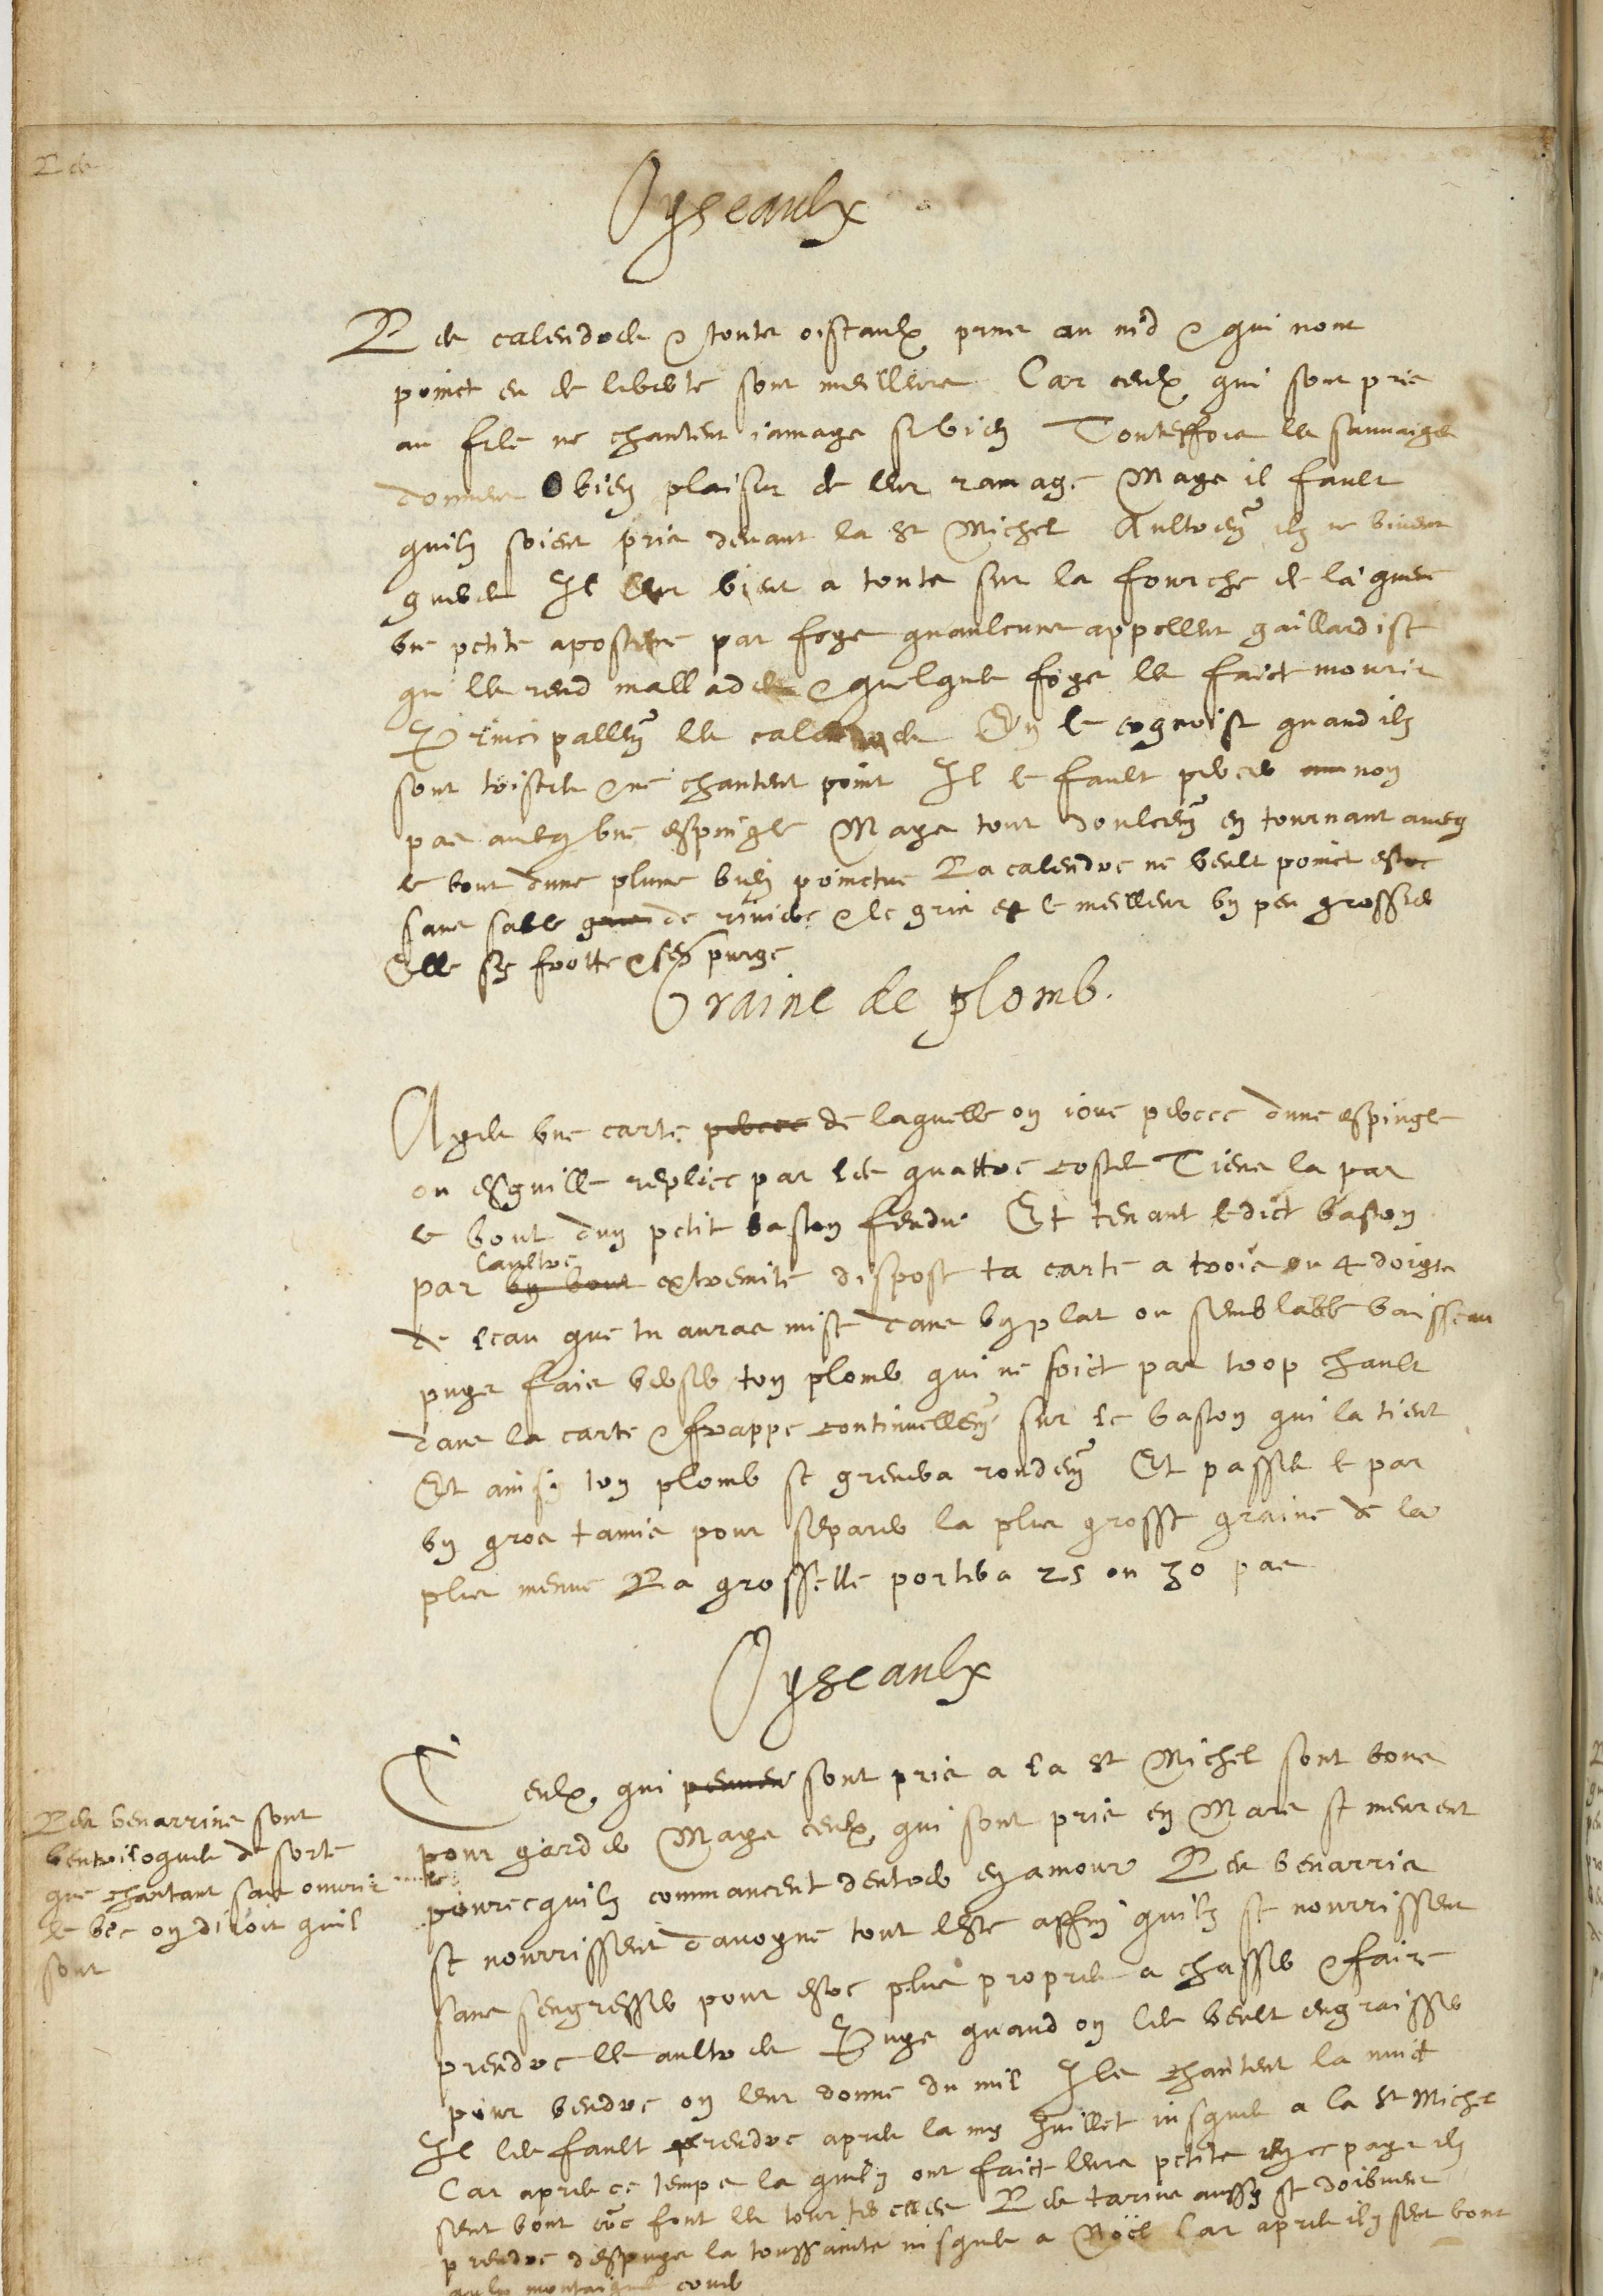 Oyseaulx
Les calendres & touts oiseaulx prins au nid & qui nont
poinct eu de liberte sont meilleurs Car ceulx qui sont pris
au filé ne chantent iamays si bien Touteffois les sauvaiges
donnent bien plaisir de leur ramage Mays il fault
quilz soient pris devant la St Michel Aultremẽt ilz ne vivent
gueres Il leur vient a touts sur la fourche de laquue
une petite aposteme par foys quaulcuns appellent gaillardise
qui les rend mallades & quelques foys les faict mourir
Principallemẽt les calendres On le cognoist quand ilz
sont tristes & ne chantent point Il le fault percer non
pas aveq une espingle Mays tout doulcemẽt en tournant aveq
le bout dune plume bien poinctue La calendre ne veult poinct estre
sans sable de riviere & le gris est le meilleur un peu grossier
Elle sy frotte & sen purge
Graine de plomb.
Ayes une carte percee de laquelle on ioue percee dune espingle
ou esguille replice par les quattre costes Tiens la par
le bout dun petit baston fendu Et tenant ledict baston
par un bout laultre extremite dispose ta carte a trois ou 4 doigts
de leau que tu auras mise dans un plat ou semblable vaisseau
puys fais verser ton plomb qui ne soict pas trop chault
dans la carte & frappe continuellemẽt sur le baston qui la tient
Et ainsy ton plomb se grenera rondemẽt Et passes le par
un gros tamis pour separer la plus grosse graine de la
plus menue La grosselle portera 25 ou 30 pas
Oyseaulx
Ceulx qui prenent sont pris a la St Michel sont bons
pour garder Mays ceulx qui sont pris en Mars se meurent
pourcequilz commancent dentrer en amour Les benarris
se nourrissent davogne tout lesté affin quilz se nourrissent
sans sengresser pour estre plus propres a chasser & faire
prendre les aultres Puys quand on les veult engraisser
pour vendre on leur donne du mil Ils chantent la nuict
Il les fault prendre apres la my Juillet iusques a la St Michel
Car apres ce temps la quilz ont faict leurs petits en ce pays ilz
sen vont cõe font les tourterelles Les tarins aussy se doibvent
prendre despuys la toussaincts iusques a Noël Car apres ilz sen vont
aulx montaignes couver
Les benarrins sont
ventriloques de sorte
que chantant sans ouvrir
le bec on diroit quil
sont